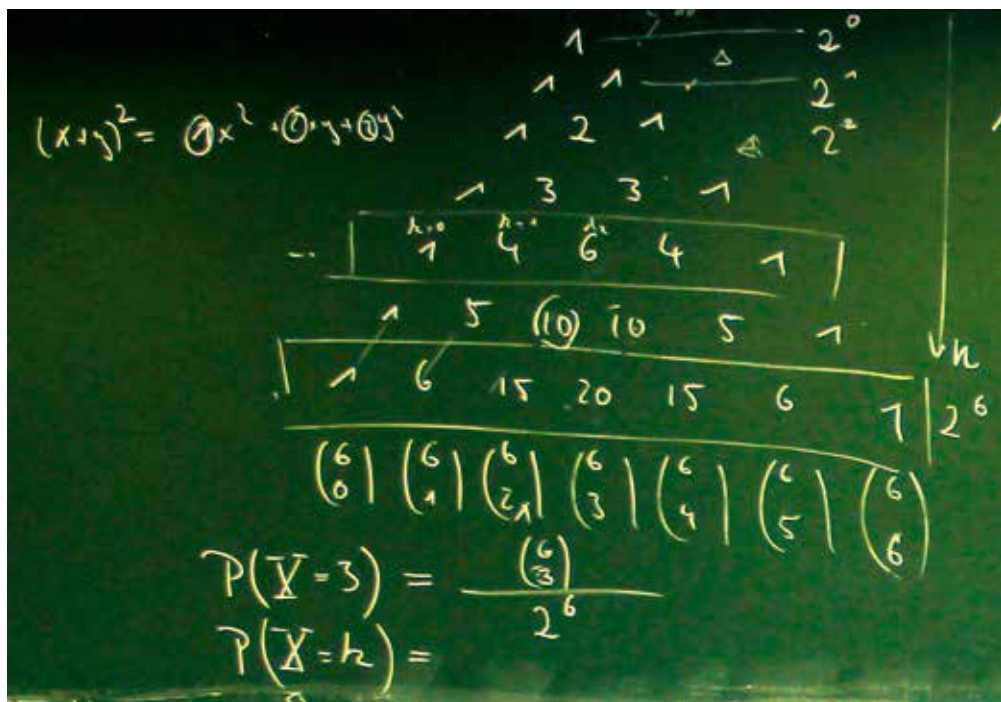 1 2^0
1 1 2^1
(x+y)^2 = 1x^2 + 2xy + 1y^2 1 2 1 2^2
1 3 3 1
k=0 k=1
1 4 6 4 1
1 5 (10) 10 5 1
n
1 6 15 20 15 6 1 2^6
(6 0) (6 1) (6 2) (6 3) (6 4) (6 5) (6 6)
P(X=3) = (6 3) / 2^6
P(X=k) =